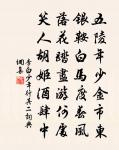 五陵年少金市東
銀鞍白馬度春風
落花踏盡遊何處
笑入胡姬酒肆中
李白少年行其二詞典
網集